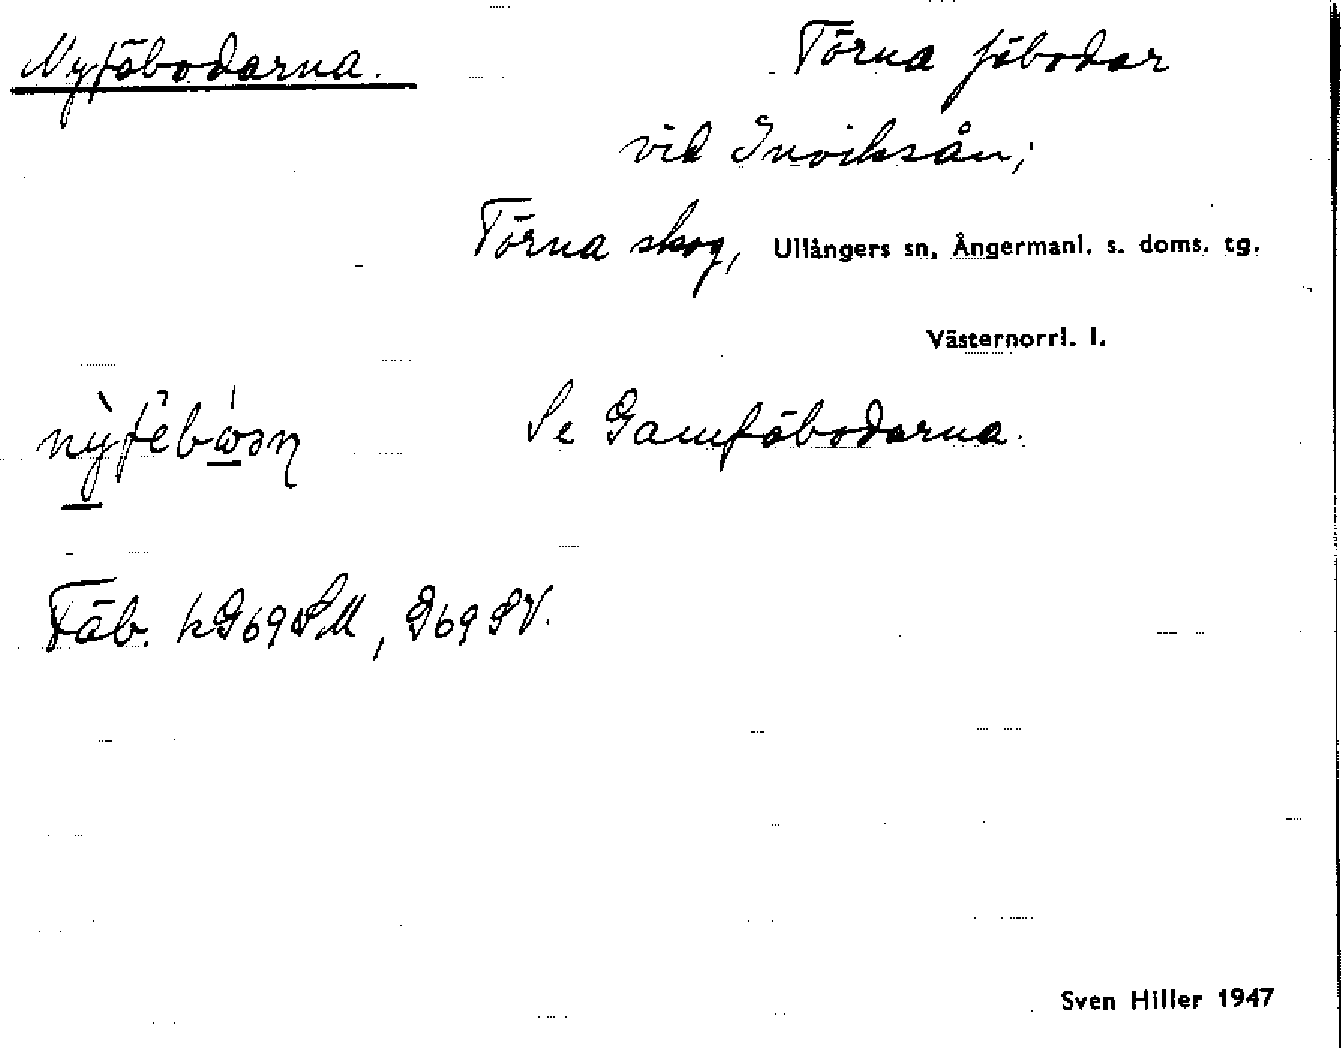 Nyfäbodarna.
Törna fäbodar
vid Inviksån;
Törna skog, Ullångers sn, Ångermanl. s. doms. tg.
Västernorrl. l.
Se Gamfäbodarna.
Fäb. kG69SM, G69SV.
Sven Hiller 1947